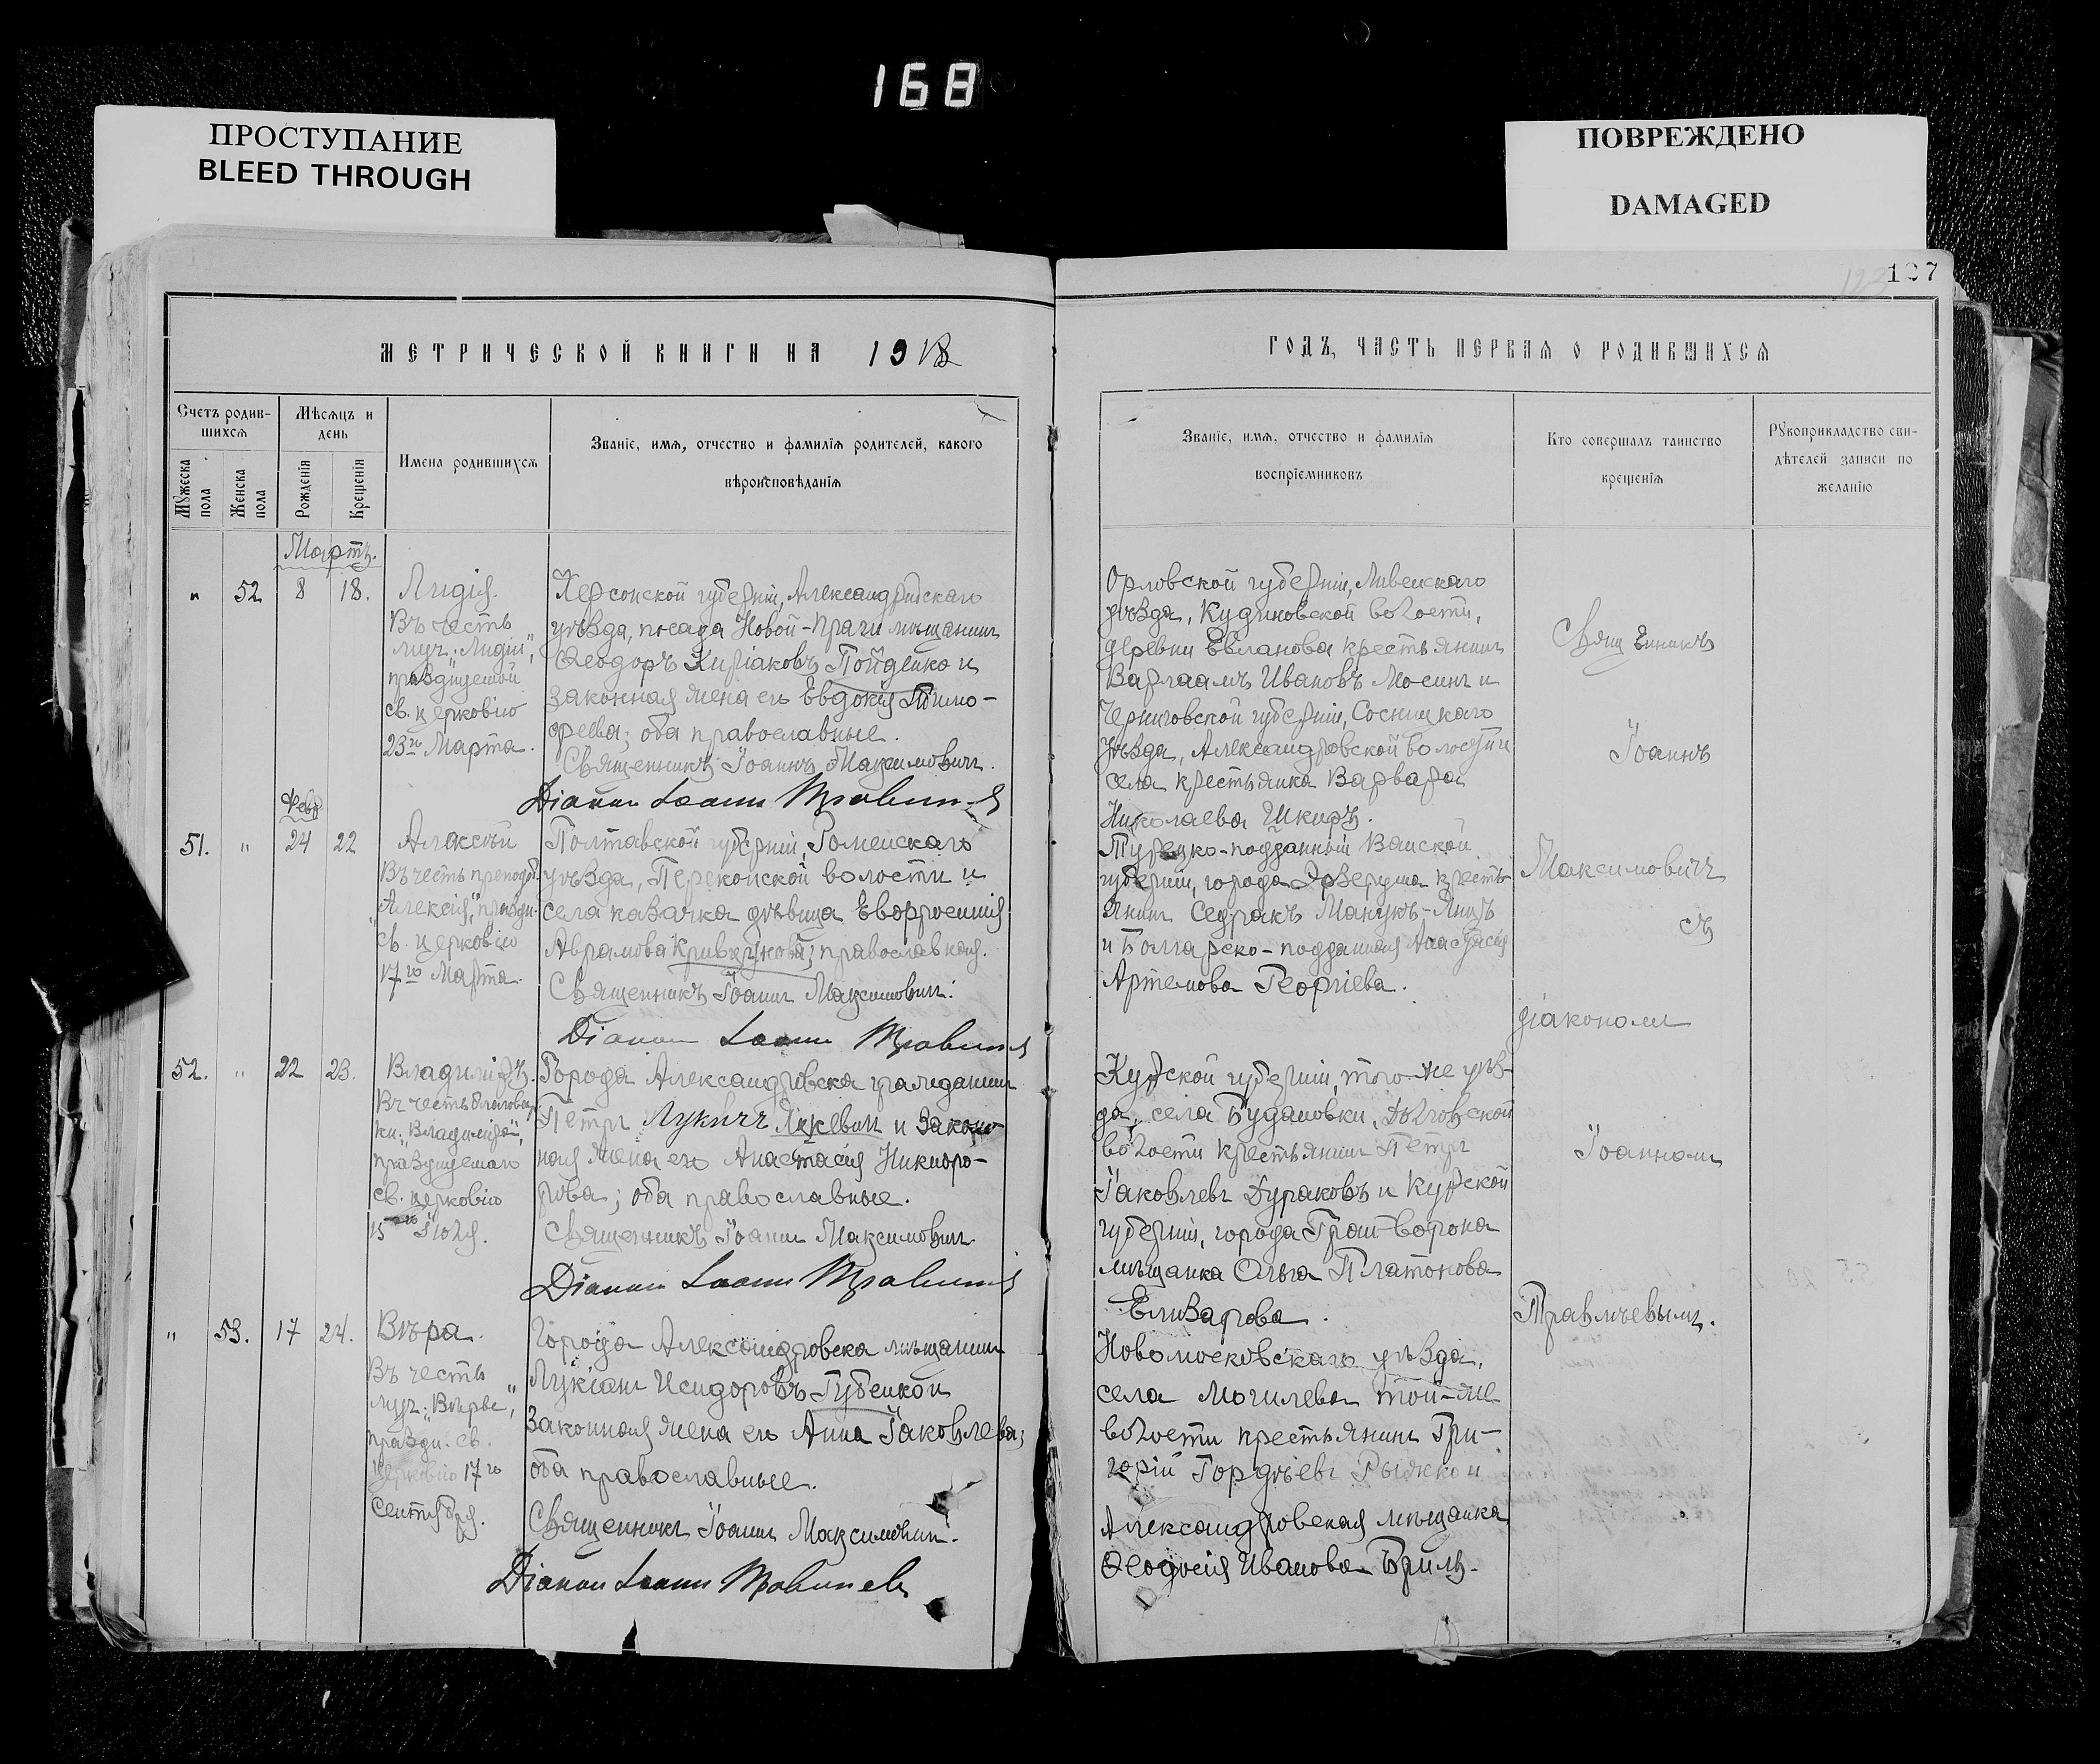 168
ПРОСТУПАНИЕ
BLEED THROUGH
ПОВРЕЖДЕНО
DAMAGED
127
МЕТРИЧЕСКОЙ КНИГИ НА 1918
Счетъ родив-
шихся
Мужеска пола
Женска пола
Мѣсяцъ и
день
Рожденія
Крещенія
Имена родившихся
Званіе, имя, отчество и фамилія родителей, какого
вѣроисповѣданія
Мартъ.
" 52 8 18.
Лидія.
Въ честь
муч. „Лидіи",
празднуемой
св. церковію
23го Марта.
Херсонской губерніи, Александрійскаго
уѣзда, посада Новой-Праги мѣщанинъ
Ѳеодоръ Киріаковъ Пойденко и
законная жена его Евдокія Тимо-
феева; оба православные.
Священникъ Іоаннъ Максимовичъ.
Діаконъ Іоаннъ Травлѣевъ
Февр
51. " 24 22
Алексѣй
Въ честь преподоб.
„Алексія", праздн.
св. церковію
17го Марта.
Полтавской губерніи, Роменскаго
уѣзда, Перекопской волости и
села казачка дѣвица Евфросинія
Аврамова православная.
Священникъ Іоаннъ Максимовичъ.
Діаконъ Іоаннъ Травлѣевъ
52. " 22 23.
Владиміръ.
Въ честь благовѣр.
кн. „Владиміра",
празднуемаго
св. церковію
15го Іюля.
Города Александровска гражданинъ
Петръ Лукичъ Яцкевичъ и закон-
ная жена его Анастасія Никифо-
рова; оба православные.
Священникъ Іоаннъ Максимовичъ.
Діаконъ Іоаннъ Травлѣевъ
" 53. 17 24.
Вѣра.
Въ честь
муч. „Вѣры",
праздн. св.
церковію 17го
Сентября.
Города Александровска мѣщанинъ
Лукіанъ Исидоровъ Губенко и
законная жена его Анна Іаковлева;
оба православные.
Священникъ Іоаннъ Максимовичъ.
Діаконъ Іоаннъ Травлѣевъ
ГОДЪ, ЧАСТЬ ПЕРВАЯ О РОДИВШИХСЯ
Званіе, имя, отчество и фамилія
воспріемниковъ
Кто совершалъ таинство
крещенія
Рукоприкладство сви-
дѣтелей записи по
желанію
Орловской губерніи, Ливенскаго
уѣзда, Кудиновской волости,
деревни Евланова крестьянинъ
Варлаамъ Ивановъ Мосинъ и
Черниговской губерніи, Сосницкаго
уѣзда, Александровской волости и
села крестьянка Варвара
Николаева Шкиръ.
Турецко-подданный Ванской
губерніи, города Эрзерума кресть-
янинъ Седракъ Манукъ-Янцъ
и Болгарско-подданная Анастасія
Артемова Георгіева.
Курской губерніи, того-же уѣз-
да, села Будановки, Долговской
волости крестьянинъ Петръ
Іаковлевъ Дураковъ и Курской
губерніи, города Грайворона
мѣщанка Ольга Платонова
Елизарова.
Новомосковскаго уѣзда,
села Могилева той-же
волости крестьянинъ Гри-
горій Гордѣевъ Рыжко и
Александровская мѣщанка
Ѳеодосія Иванова Бриль.
Священникъ
Іоаннъ
Максимовичъ
съ
діакономъ
Іоанномъ
Травлѣевымъ.